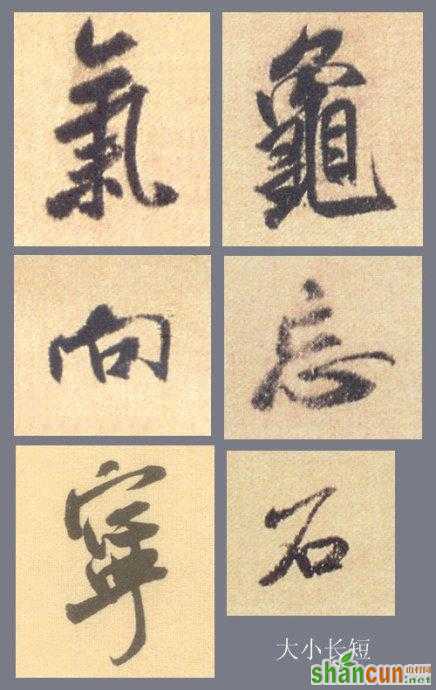 氣 龜
向 忘
寧 石
大小长短
shancun